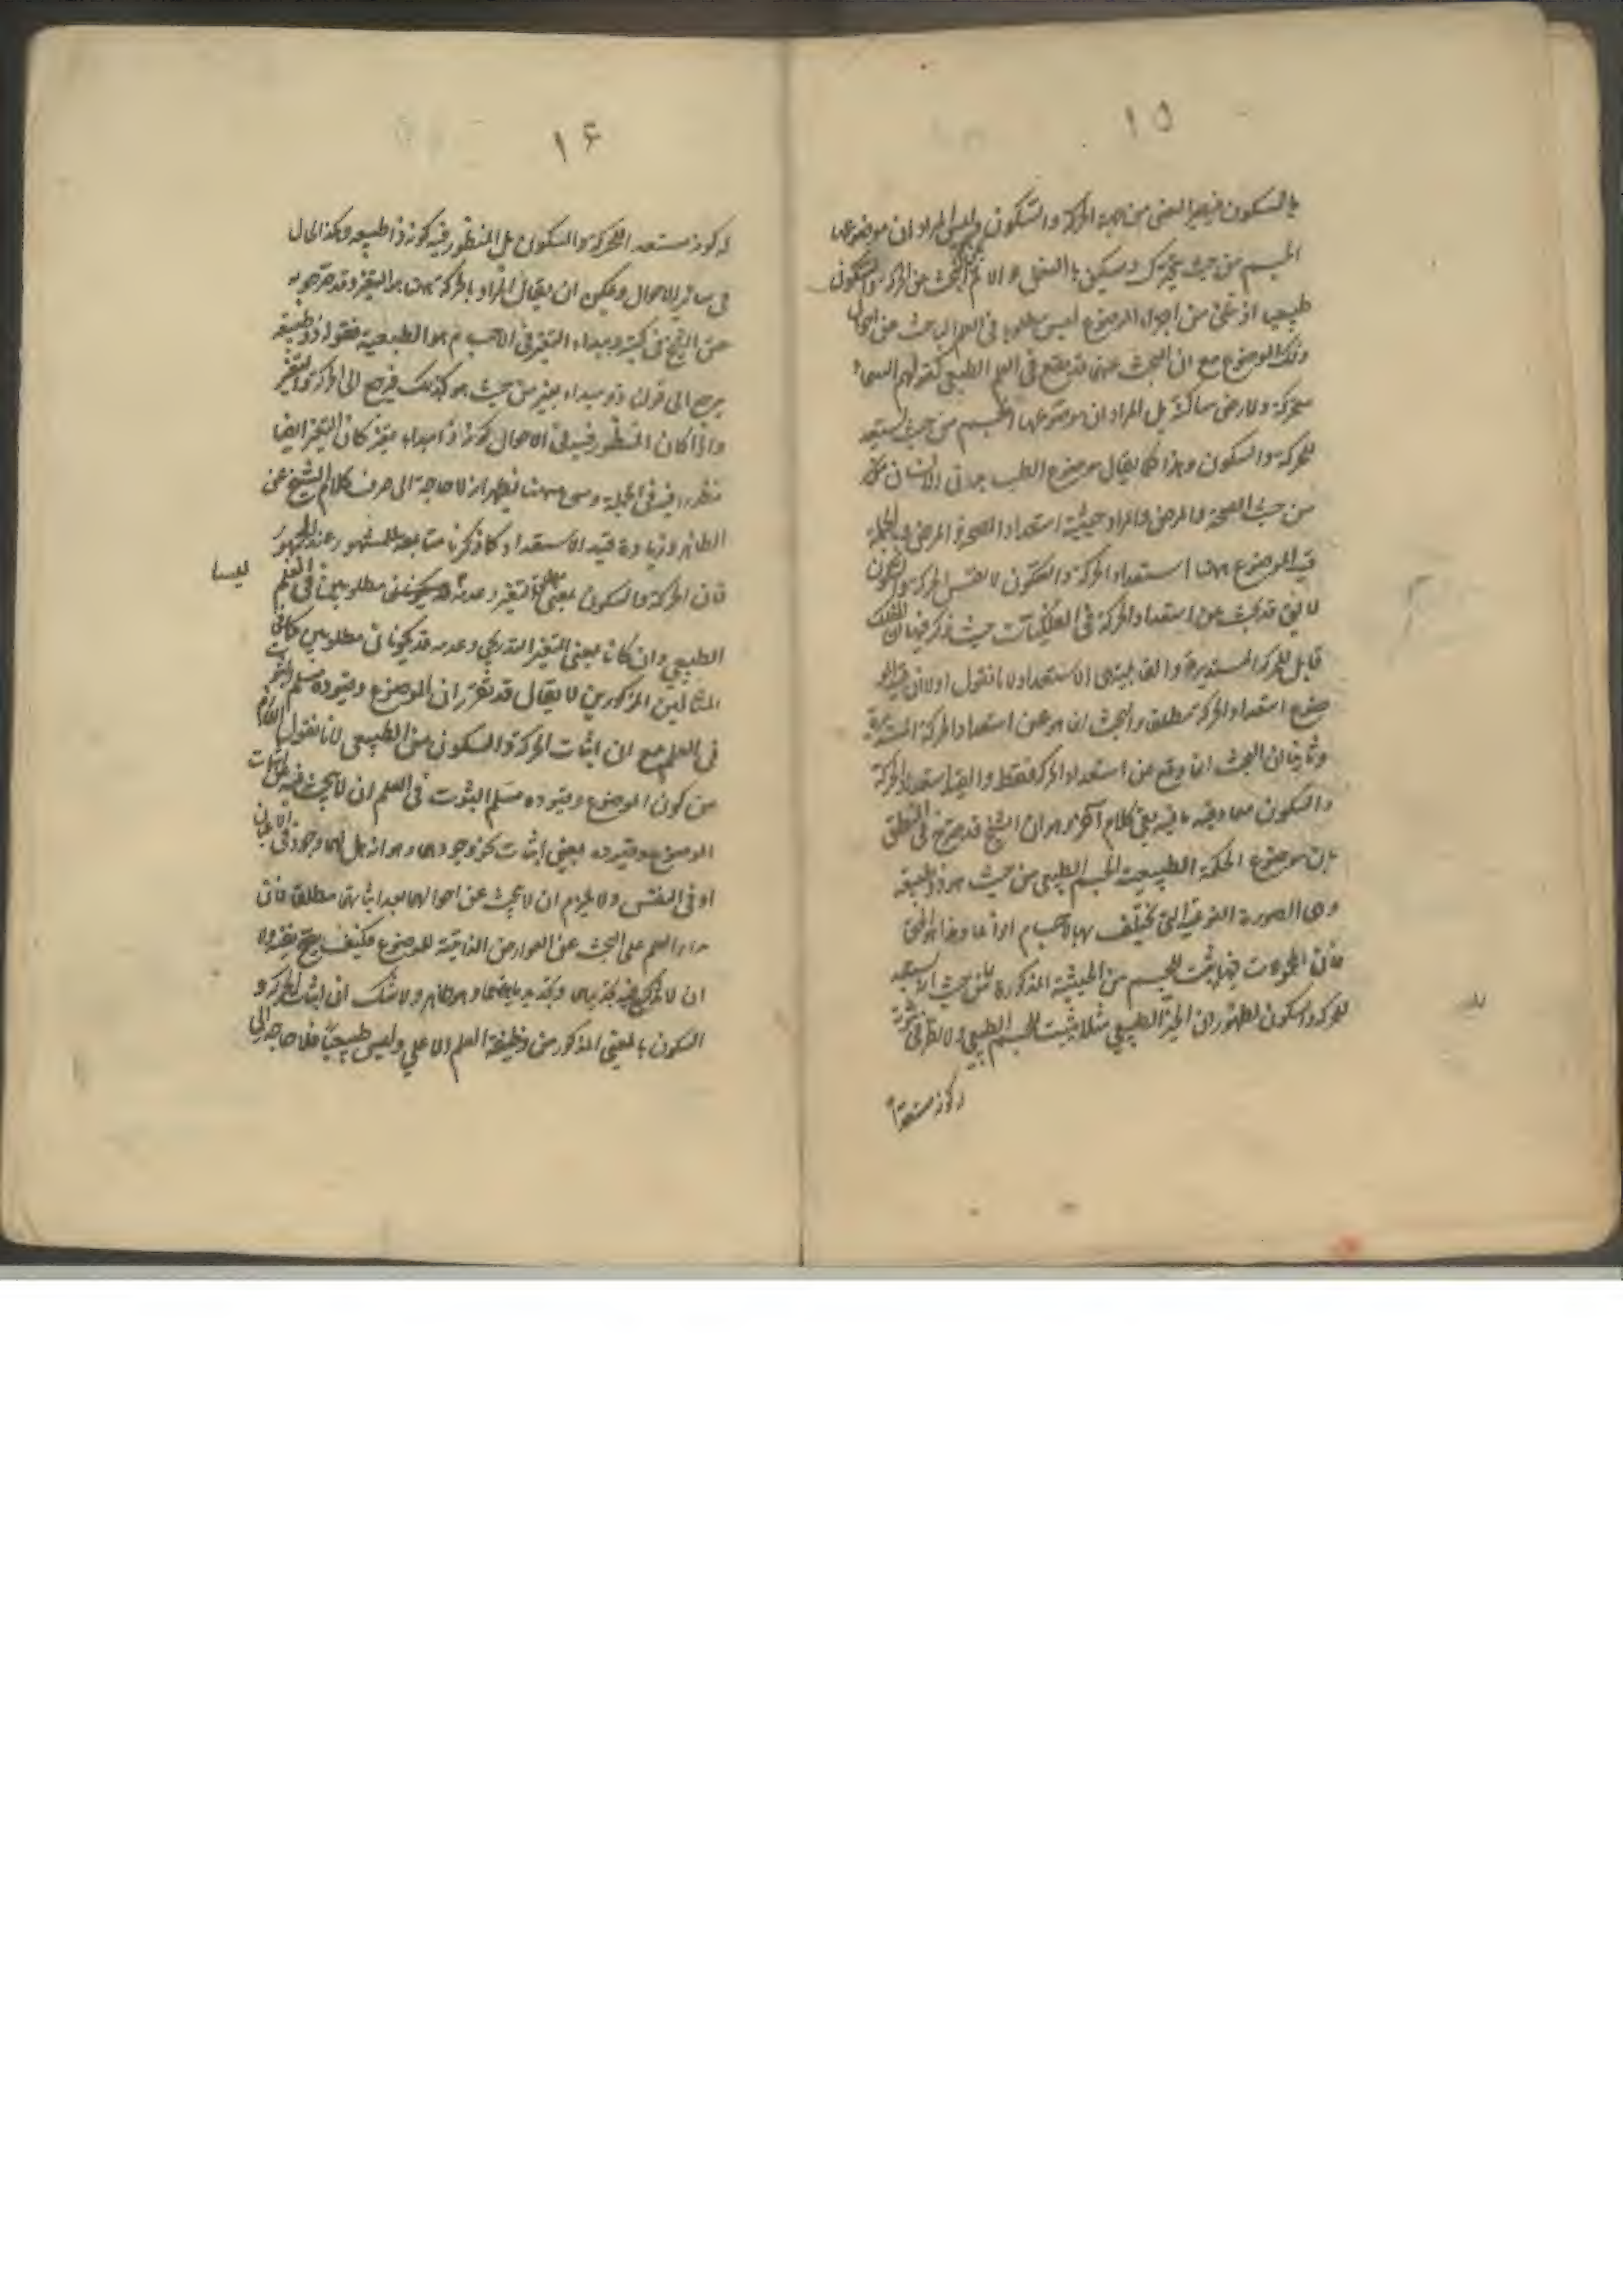 ١٥
بالسكون فيصير المعنى من جهة الحركة والسكون وليس المراد ان موضوعها
الجسم من حيث يتحرك ويسكن بالفعل والا لم البحث عن الحركة والسكون
طبيعيا اذ شئ من اجزاء الموضوع ليس مطلوبا في العلم الباحث عن احوال
ذلك الموضوع مع ان البحث عنهما قد يقع في العلم الطبيعي كقولهم السماء
متحركة والارض ساكنة بل المراد ان موضوعها الجسم من حيث يستعد
للحركة والسكون وهذا كما يقال موضوع الطب بدن الانسان
من حيث الصحة والمرض والمراد حيثية استعداد الصحة والمرض وبالجملة
قيد الموضوع ههنا استعداد الحركة والسكون لا نفس الحركة والسكون
لا يقال قد يبحث عن استعداد الحركة في الفلكيات حيث ذكر فيها ان الفلك
قابل للحركة المستديرة والقابلية هي الاستعداد لانا نقول اولا ان قيد المو
ضوع استعداد الحركة مطلقا والبحث انما هو عن استعداد الحركة المستديرة
وثانيا ان البحث انما وقع عن استعداد الحركة فقط والقيد استعداد الحركة
والسكون معا وفيه ما فيه بقي كلام آخر وهو ان الشيخ قد صرح في المنطق
بان موضوع الحكمة الطبيعية الجسم الطبيعي من حيث هو ذو طبيعة
وهي الصورة النوعية التي تختلف بها الاجسام انواعا وهذا هو الحق
فان المحمولات فيها يثبت للجسم من الحيثية المذكورة لا من حيث انه يستعد
للحركة والسكون لظهور ان الحيز الطبيعي مثلا يثبت للجسم الطبيعي ولا نظر في ثبوته
له كونه مستعدا
١٦
له كونه مستعدا للحركة والسكون بل المنظور فيه كونه ذا طبيعة وهكذا الحال
في سائر الاحوال ويمكن ان يقال المراد بالحركة ههنا هو التغير وقد صرح به
عن الشيخ في كتبه ومبداء التغير في الاجسام هو الطبيعة فقولنا ذو طبيعة
يرجع الى قولنا ذو مبداء تغير من حيث هو كذلك فرجع الى الحركة والتغير
واذا كان المنظور فيه في الاحوال كونه ذا مبداء تغير كان التغير ايضا
منظورا فيه في الجملة ومن ههنا يظهر انه لا حاجة الى صرف كلام الشيخ عن
الظاهر وزيادة قيد الاستعداد كما ذكرنا متابعة للمشهور عند الجمهور
فان الحركة والسكون بمعنى مطلق التغير وعدمه مطلوبين في العلم
ليسا
الطبيعي وان كانا بمعنى التغير التدريجي وعدمه قد يكونان مطلوبين كما في
المثالين المذكورين لا يقال قد تقرر ان الموضوع وقيوده مسلم الثبوت
في العلم مع ان اثبات الحركة والسكون من الطبيعي لانا نقول اللازم
من كون الموضوع وقيوده مسلم الثبوت في العلم ان لا يبحث فيه عن اثبات
الموضوع وقيوده بمعنى اثبات نحو وجودها وهو انه هل لها وجود في الاعيان
او في النفس ولا يلزم ان لا يبحث عن احوالها بعد اثباتها مطلقا فان
مدار العلم على البحث عن العوارض الذاتية للموضوع فكيف يصح قيوده
السكون بالمعنى المذكور من وظيفة العلم الاعلى وليس طبيعيا فلا حاجة الى